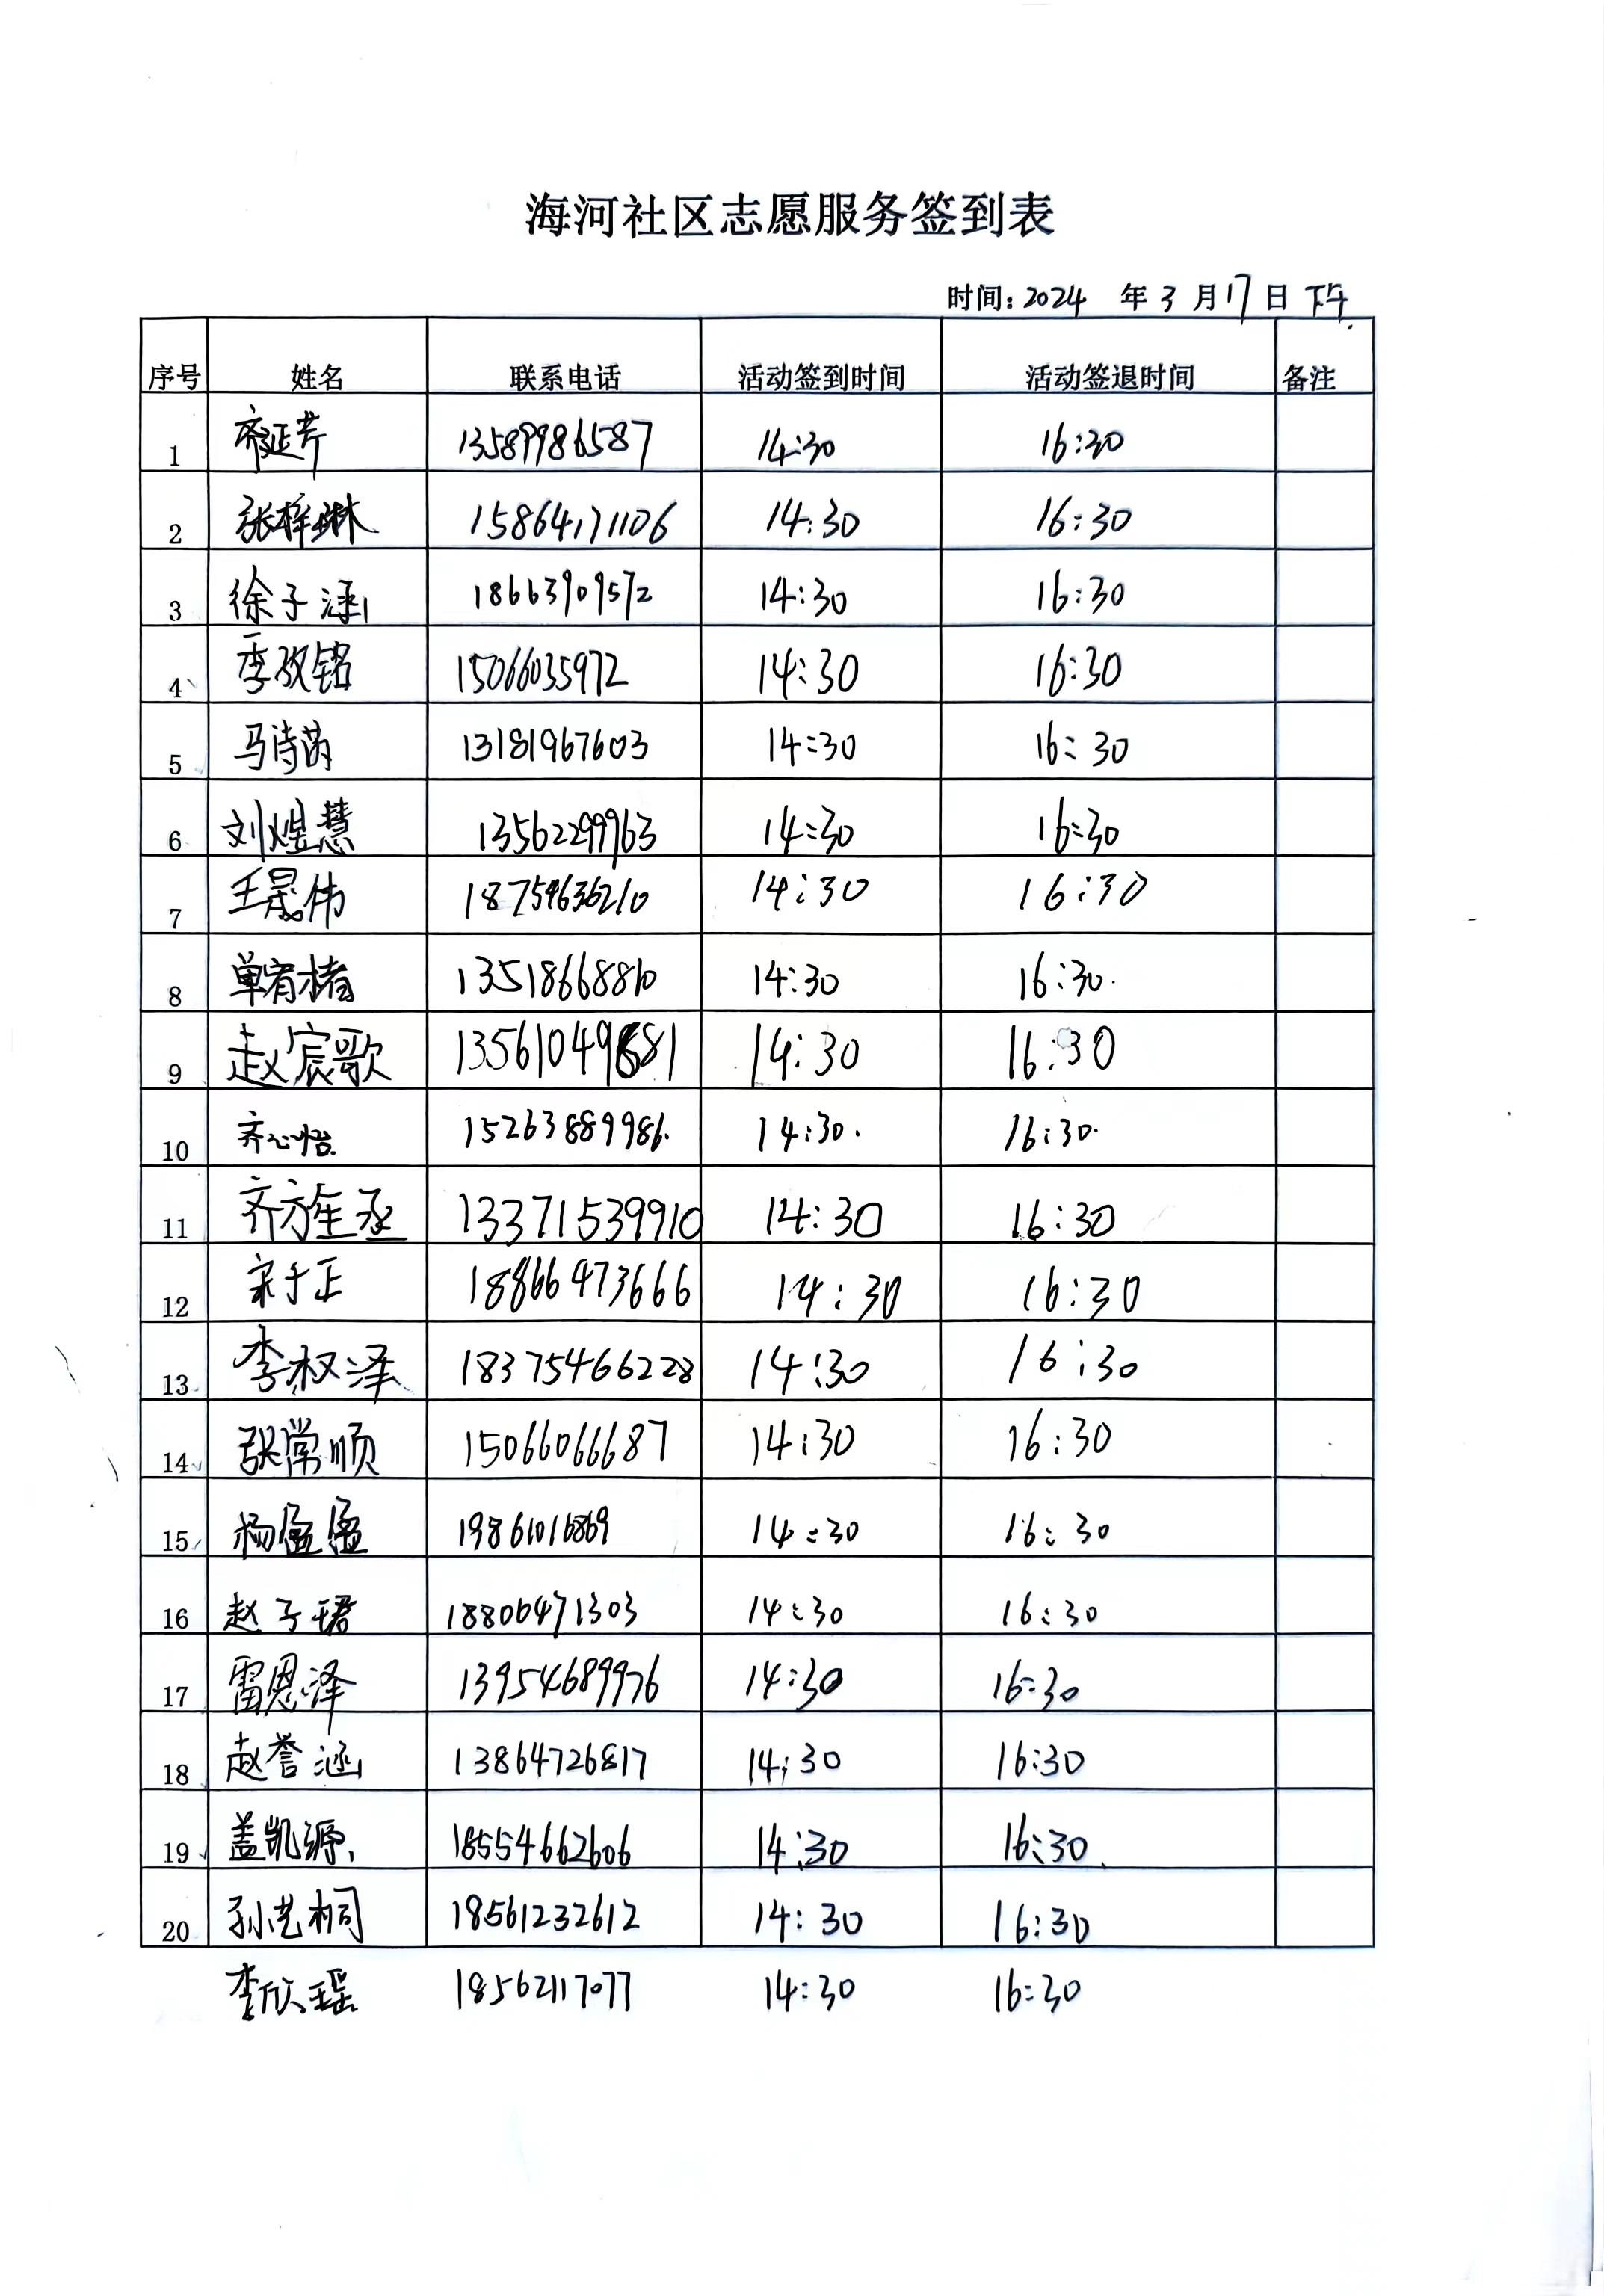 海河社区志愿服务签到表
时间：2024 年 3 月 17 日 下午
序号 姓名 联系电话 活动签到时间 活动签退时间 备注
1 齐延芹 13589986587 14:30 16:30
2 张梓琳 15864171106 14:30 16:30
3 徐子涵 18663909572 14:30 16:30
4 李孜铭 15066035972 14:30 16:30
5 马诗茵 13181967603 14:30 16:30
6 刘煜慧 13562299963 14:30 16:30
7 王晟伟 18754636210 14:30 16:30
8 单宥楮 13518668810 14:30 16:30
9 赵宸歌 13561049881 14:30 16:30
10 齐心怡 15263889986 14:30 16:30
11 齐方笙丞 13371539910 14:30 16:30
12 宋于正 18866473666 14:30 16:30
13 李权泽 18375466228 14:30 16:30
14 张常顺 15066066687 14:30 16:30
15 杨孟孟 19861016869 14:30 16:30
16 赵子珺 18806471303 14:30 16:30
17 雷恩泽 13954689976 14:30 16:30
18 赵誉涵 13864726817 14:30 16:30
19 盖凯源 18554662606 14:30 16:30
20 孙艺桐 18561232612 14:30 16:30
李欣瑶 18562117077 14:30 16:30